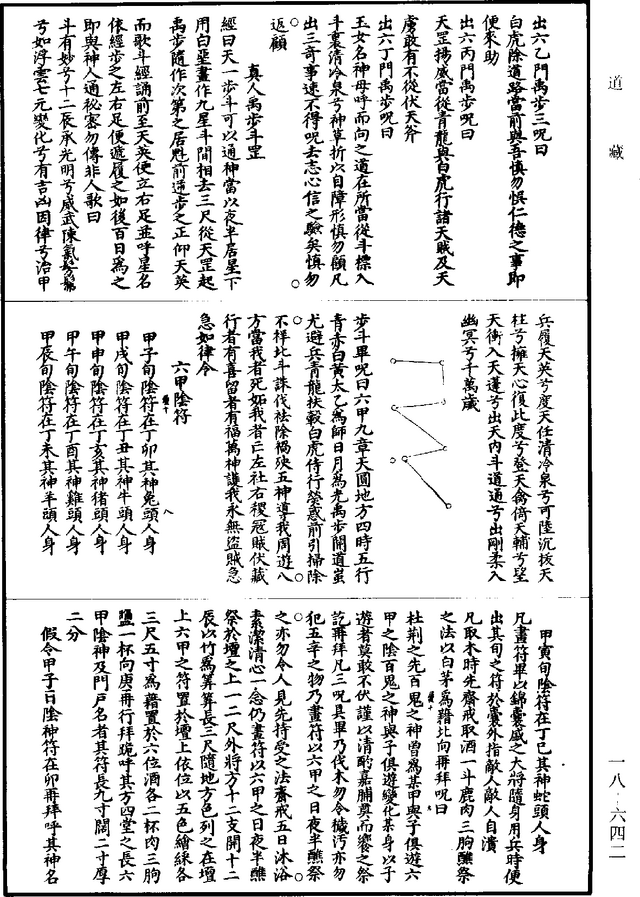 道藏
出六乙門禹步三呪曰
白虎除道路當前與吾慎勿惧仁德之事即
便來助
出六丙門禹步呪曰
天罡揚威當從青龍與白虎行諸天賊及天
虜敢有不從伏天斧
出六丁門禹步呪曰
玉女名神母呼而向之道在所當從斗標入
斗裏清冷泉兮神草折以自障形慎勿顧凡
出三奇事速不得呪去志心信之驗矣慎勿
返顧
真人禹步斗罡
經曰天一步斗可以通神當以夜半居星下
用白堊畫作九星斗間相去三尺從天罡起
禹步隨作次第之居魁前逆步之正仰天英
而歌斗經誦前至天英便立右足並呼星名
依經步之左右足便遞履之如後百日為之
即與神人通秘密勿傳非人歌曰
斗有妙兮十二辰承光明兮威武陳氣髣髴
兮如浮雲七元變化兮有吉凶因律兮治甲
兵履天英兮度天任清冷泉兮可陸沉拔天
柱兮擁天心復此度兮登天禽倚天輔兮望
天衝入天蓬兮出天內斗道通兮出剛柔入
幽冥兮千萬歲
步斗畢呪曰六甲九章天圓地方四時五行
青赤白黃太乙為師日月為光禹步開道蚩
尤避兵青龍扶轂白虎侍行熒惑前引掃除
不祥北斗誅伐袪除禍殃五神導我周遊八
方當我者死妬我者亡左社右稷冦賊伏藏
行者有喜留者有福萬神護我永無盜賊急
急如律令
六甲陰符
甲子旬陰符在丁卯其神兔頭人身
甲戌旬陰符在丁丑其神牛頭人身
甲申旬陰符在丁亥其神猪頭人身
甲午旬陰符在丁酉其神雞頭人身
甲辰旬陰符在丁未其神羊頭人身
甲寅旬陰符在丁巳其神蛇頭人身
凡畫符畢以錦囊盛之大將隨身用兵時便
出其旬之符於囊外指敵人敵人自潰
凡取木時先齋戒取酒一斗鹿肉三朐醮祭
之法以白茅為藉北向再拜呪曰
杜荆之先百鬼之神曾為某甲與子俱遊六
甲之陰百鬼之神與子俱遊變化某身以子
遊者莫敢不伏謹以清酌嘉脯奠而饗之祭
訖再拜凡三呪具畢乃伐木勿令穢污亦勿
犯五辛之物乃畫符以六甲之日夜半醮祭
之亦勿令人見先持受之法齋戒五日沐浴
素潔清心一念仍畫符以六甲之日夜半醮
祭於壇之上一二尺外將方十二支開十二
辰以竹為筭筭長三尺隨地方色列之在壇
上六甲之符置於壇上依位以五色繪綵各
三尺五寸為藉置於六位酒各二杯肉三朐
鹽一杯向庚再行拜跪呼其方四堂之長六
甲陰神及門戶名者其符長九寸闊二寸厚
二分
假令甲子日陰神符在卯再拜呼其神名
一八·六四二